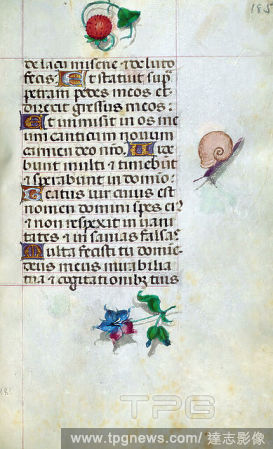 185
de lacu miserie et de luto
fecis Et statuit sup
petram pedes meos et
direxit gressus meos
Et inmisit in os me
um canticum novum
carmen deo nro Vide
bunt multi et timebunt
et sperabunt in domino
Beatus vir cuius est
nomen domini spes ei
et non respexit in vani
tates et insanias falsas
Multa fecisti tu domine
deus meus mirabilia
tua et cogitationibz tuis
TPG
www.tpgnews.com/ 達志影像